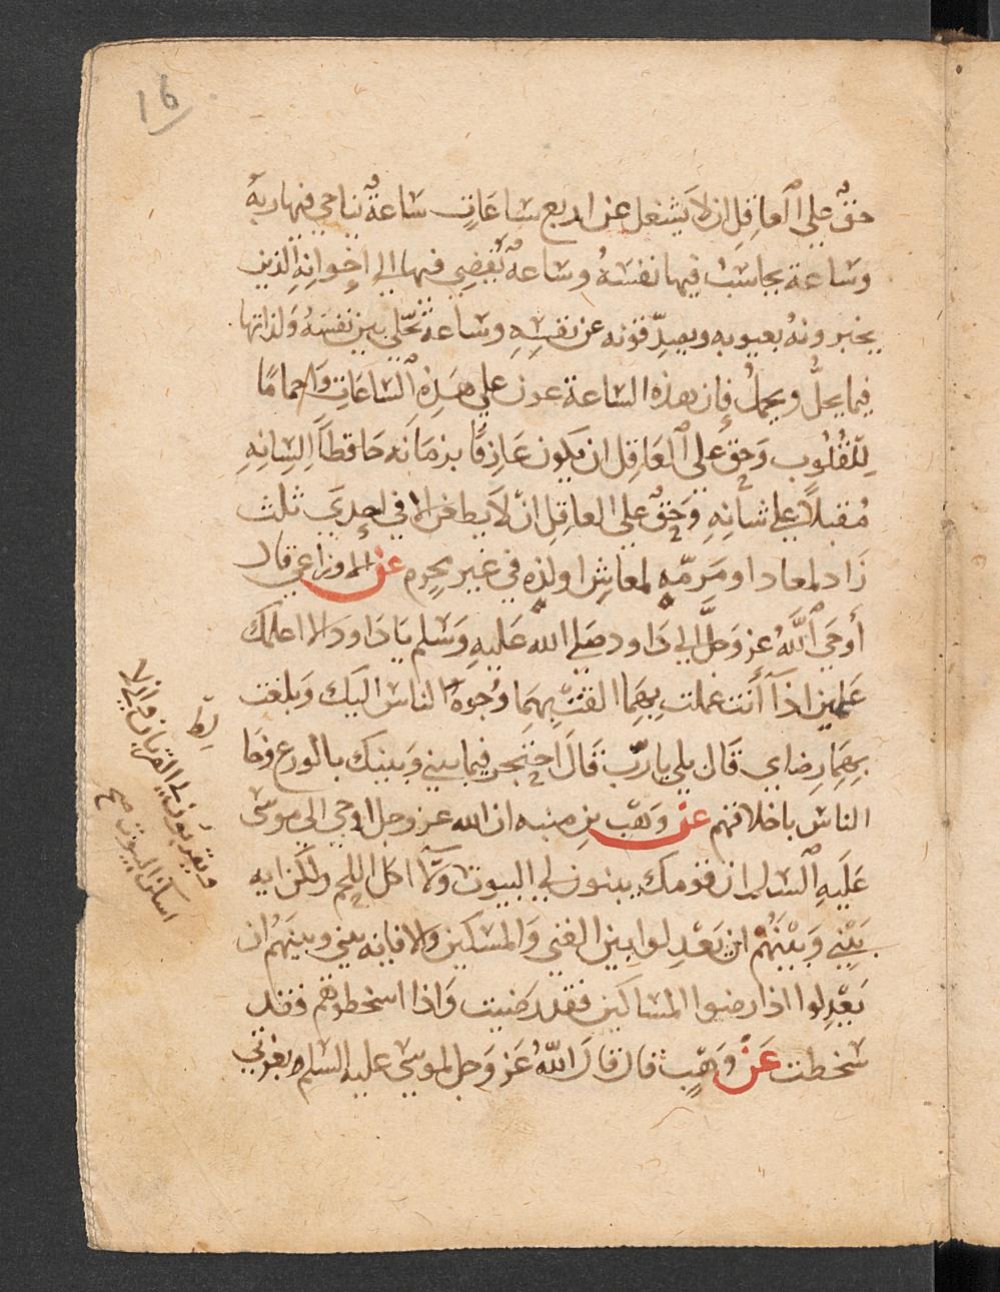 16
حقٌ علي العاقِلِ ان لا يَشغل عن اربع سَاعَاتٍ سَاعةٌ يناجي فيها ربهُ
وسَاعة يحاسَبُ فيها نفسَهُ وسَاعةٌ يُفضِي فيها الي اخِوانِهِ الذين
يخبرونهُ بعيوبه ويصدِّقونه عن نفسِهِ وسَاعة تخلّي بين نفسَهُ ولذاتها
فيما يحلُّ ويجملُ فان هذه السَاعة عون علي هَذِهِ السَّاعَاتِ واجمامًا
للقُلُوب وَحقٌ علي العَاقِل ان يكون عَارِفًا بزمَانه حَافظاً لِلسَانِهِ
مُقبلاً علي شانِهِ وَحَقٌ علي العاقِلِ انْ لاَ يظعن الا في احدي ثلث
زَاد لمعاد او مَرمّهٍ لمعاشٍ او لذهٍ في غير محرم عن الاوزاعي قال
أوحَي اللَّهُ عز وَجلَّ الي دَاود صَلي الله عَليهِ وَسَلم يا دَاود الا اعلمك
عَلمين اذا أنت عملت بِهِمَا الفتُ بهِمَا وجُوهَ الناس اليك وَبلغت
بهِمَا رِضاي قَال بلي يا ربّ قَالَ احتجر فيما بيني وَبينك بالورع وخا
الناسَ باخلاقهم عن وَهْب بن منبه ان الله عز وجل اوحي الي موسَي
عَلَيهِ السَلم ان قومك يبنون لي البيوت وَلا اكل اللحم ولكن ايه
بَيْنِي وَبَيْنَهُمْ ان يَعْدِلوا بين الغني وَالمسَكين والا فايه بيني وبينهُم ان
يَعْدِلوا اذا رضوا المسَاكين فقد رَضيت وَاذا اسخطوهم فقد
سَخطت عَنْ وَهْبٍ قال قالَ اللّهُ عَز وَجل لموسَي عليه السَلم بعزتي
ويقربون لي القربان واني لا
اسكن البيوت صح